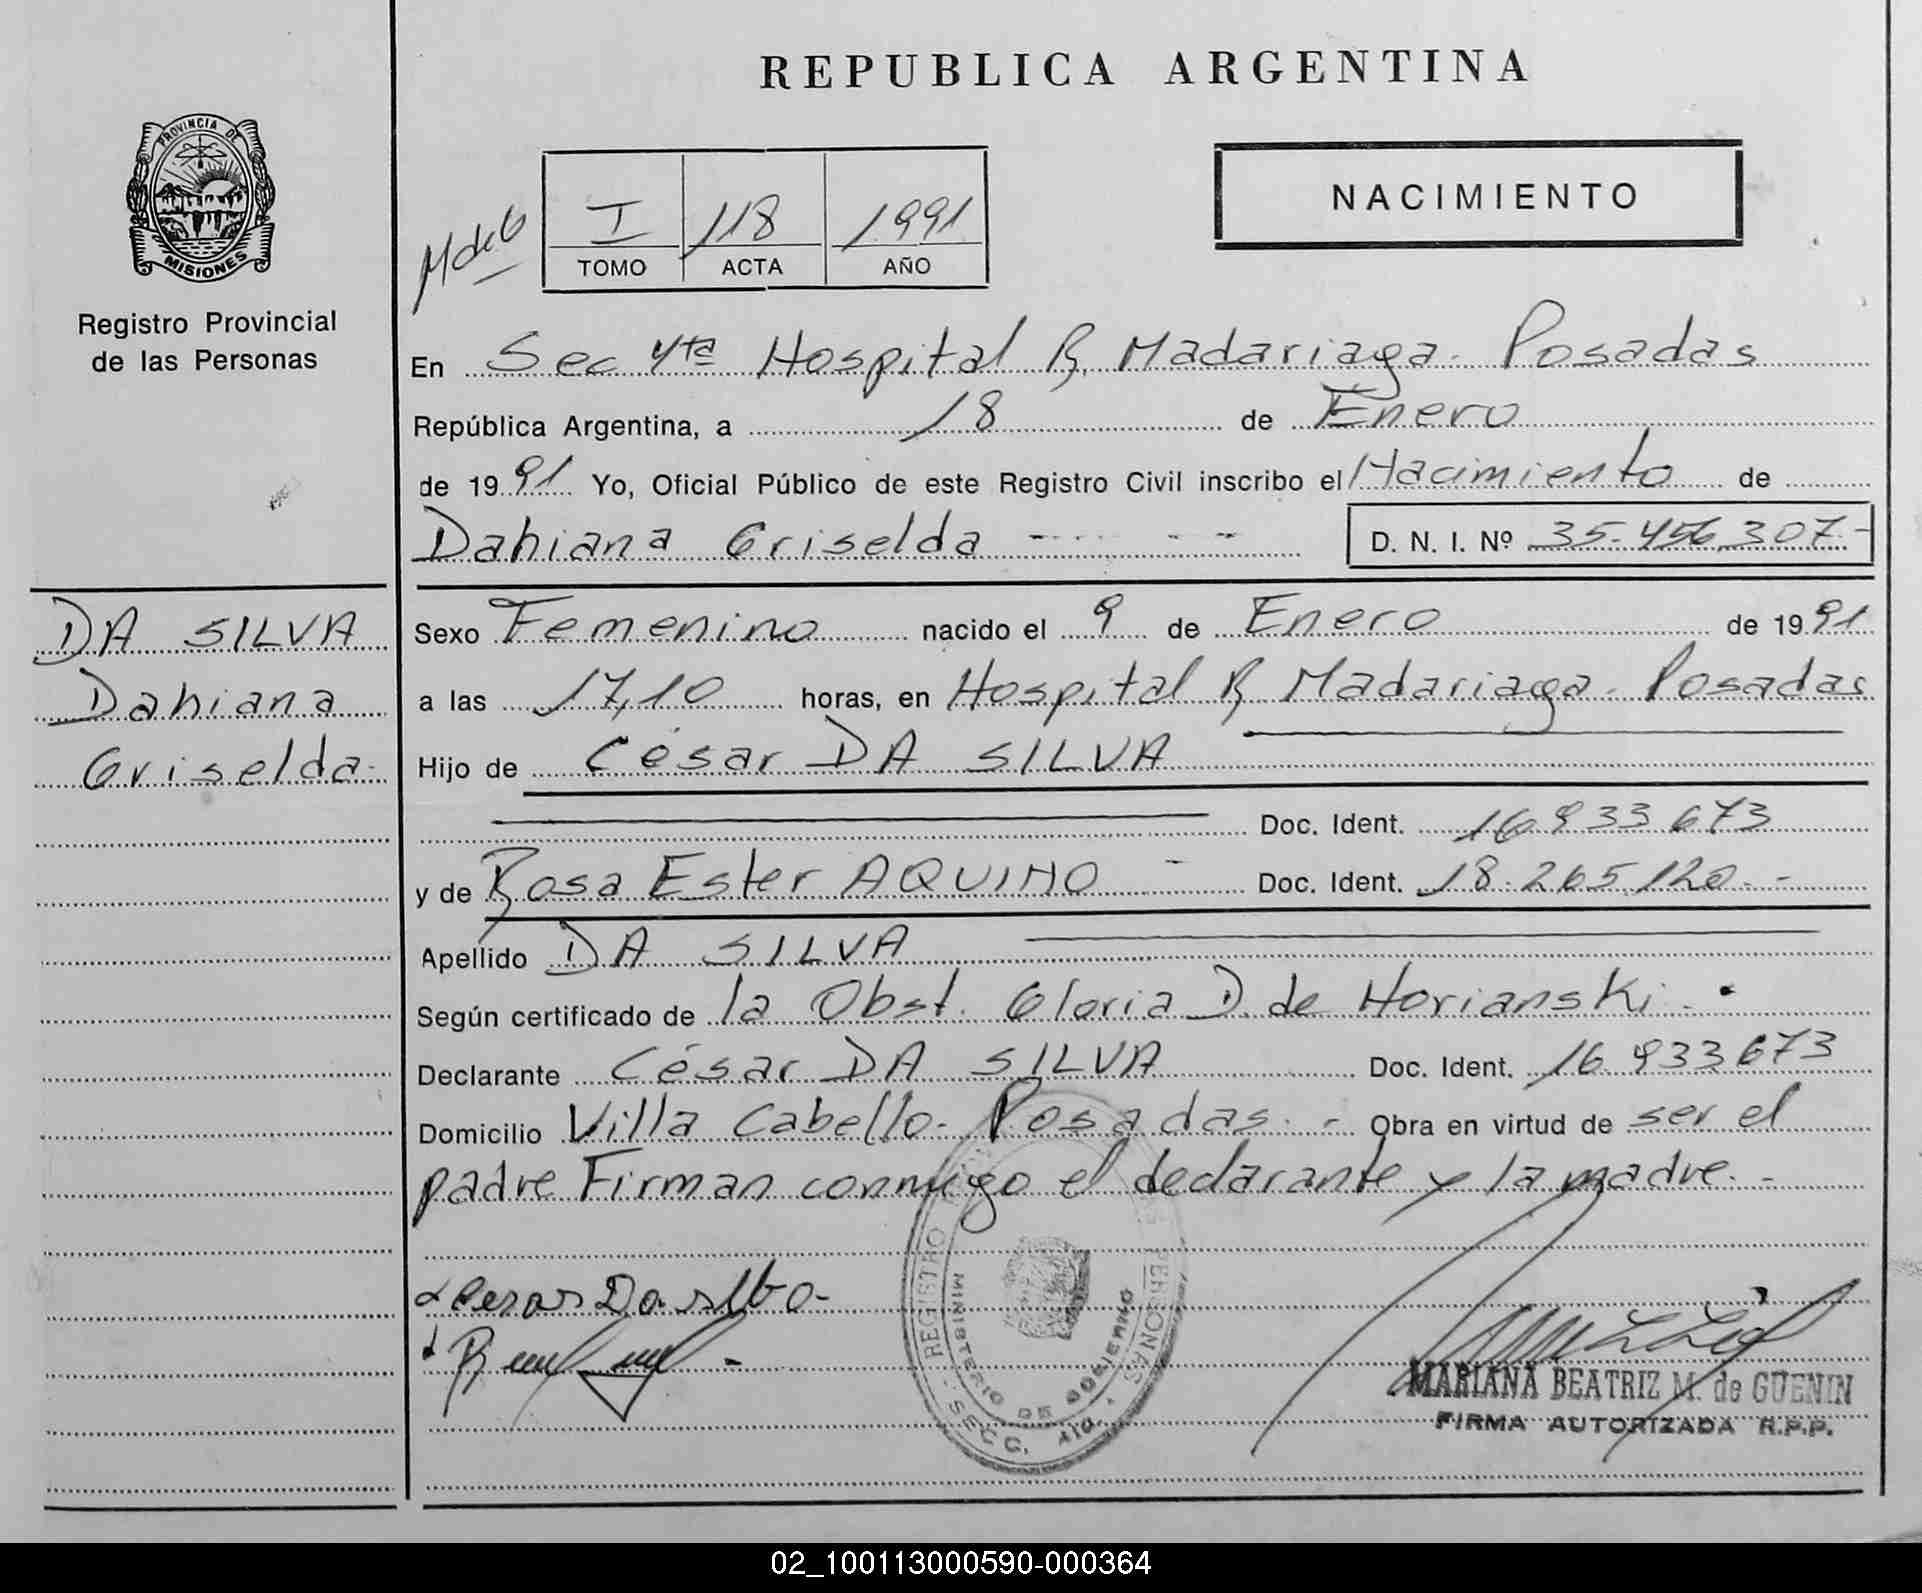 REPUBLICA ARGENTINA
PROVINCIA DE
MISIONES
Registro Provincial
de las Personas
I 118 1991
TOMO ACTA AÑO
NACIMIENTO
En Sec 4ta Hospital R. Madariaga. Posadas
República Argentina, a 18 de Enero
de 1991 Yo, Oficial Público de este Registro Civil inscribo el Nacimiento de
Dahiana Griselda - - - - - D. N. I. Nº 35.456.307.-
DA SILVA
Dahiana
Griselda-
Sexo Femenino nacido el 9 de Enero de 1991
a las 17,10 horas, en Hospital R. Madariaga. Posadas
Hijo de César DA SILVA
Doc. Ident. 16 933 673
y de Rosa Ester AQUINO - Doc. Ident. 18.265.120.-
Apellido DA SILVA
Según certificado de la Obst. Gloria D. de Horianski.
Declarante César DA SILVA Doc. Ident. 16 933 673
Domicilio Villa Cabello. Posadas. - Obra en virtud de ser el
padre Firman conmigo el declarante y la madre. -
REGISTRO PERSONAS
MINISTERIO DE GOBIERNO
SECC. 4ta.
MARIANA BEATRIZ M. de GUENIN
FIRMA AUTORIZADA R.P.P.
02_100113000590-000364